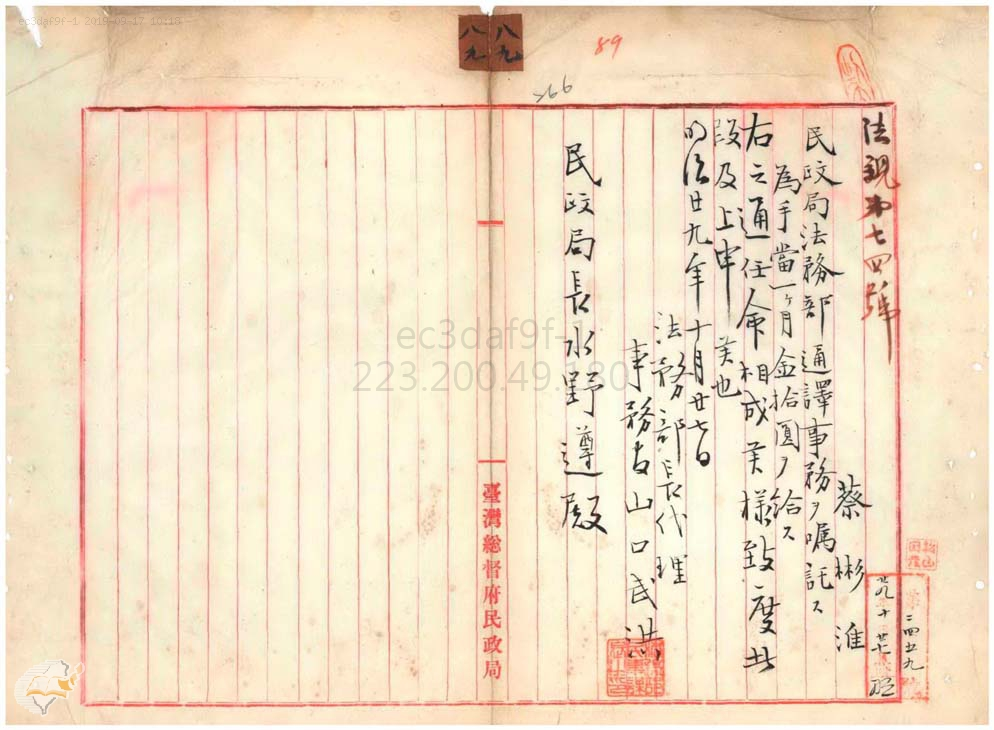 ec3daf9f-1 2019-09-17 10:18
八九
八九
89
266
法規第七四號
蔡彬淮
民政局法務部通譯事務ヲ嘱託ス
為手當一ヶ月金拾圓ヲ給ス
右之通任命相成候様致度此
段及上申候也
明治廿九年十月廿七日
法務部長代理
事務官山口武洪
民政局長水野遵殿
臺灣総督府民政局
二四五九
廿九 十 廿七
ec3daf9f-1
223.200.49.180